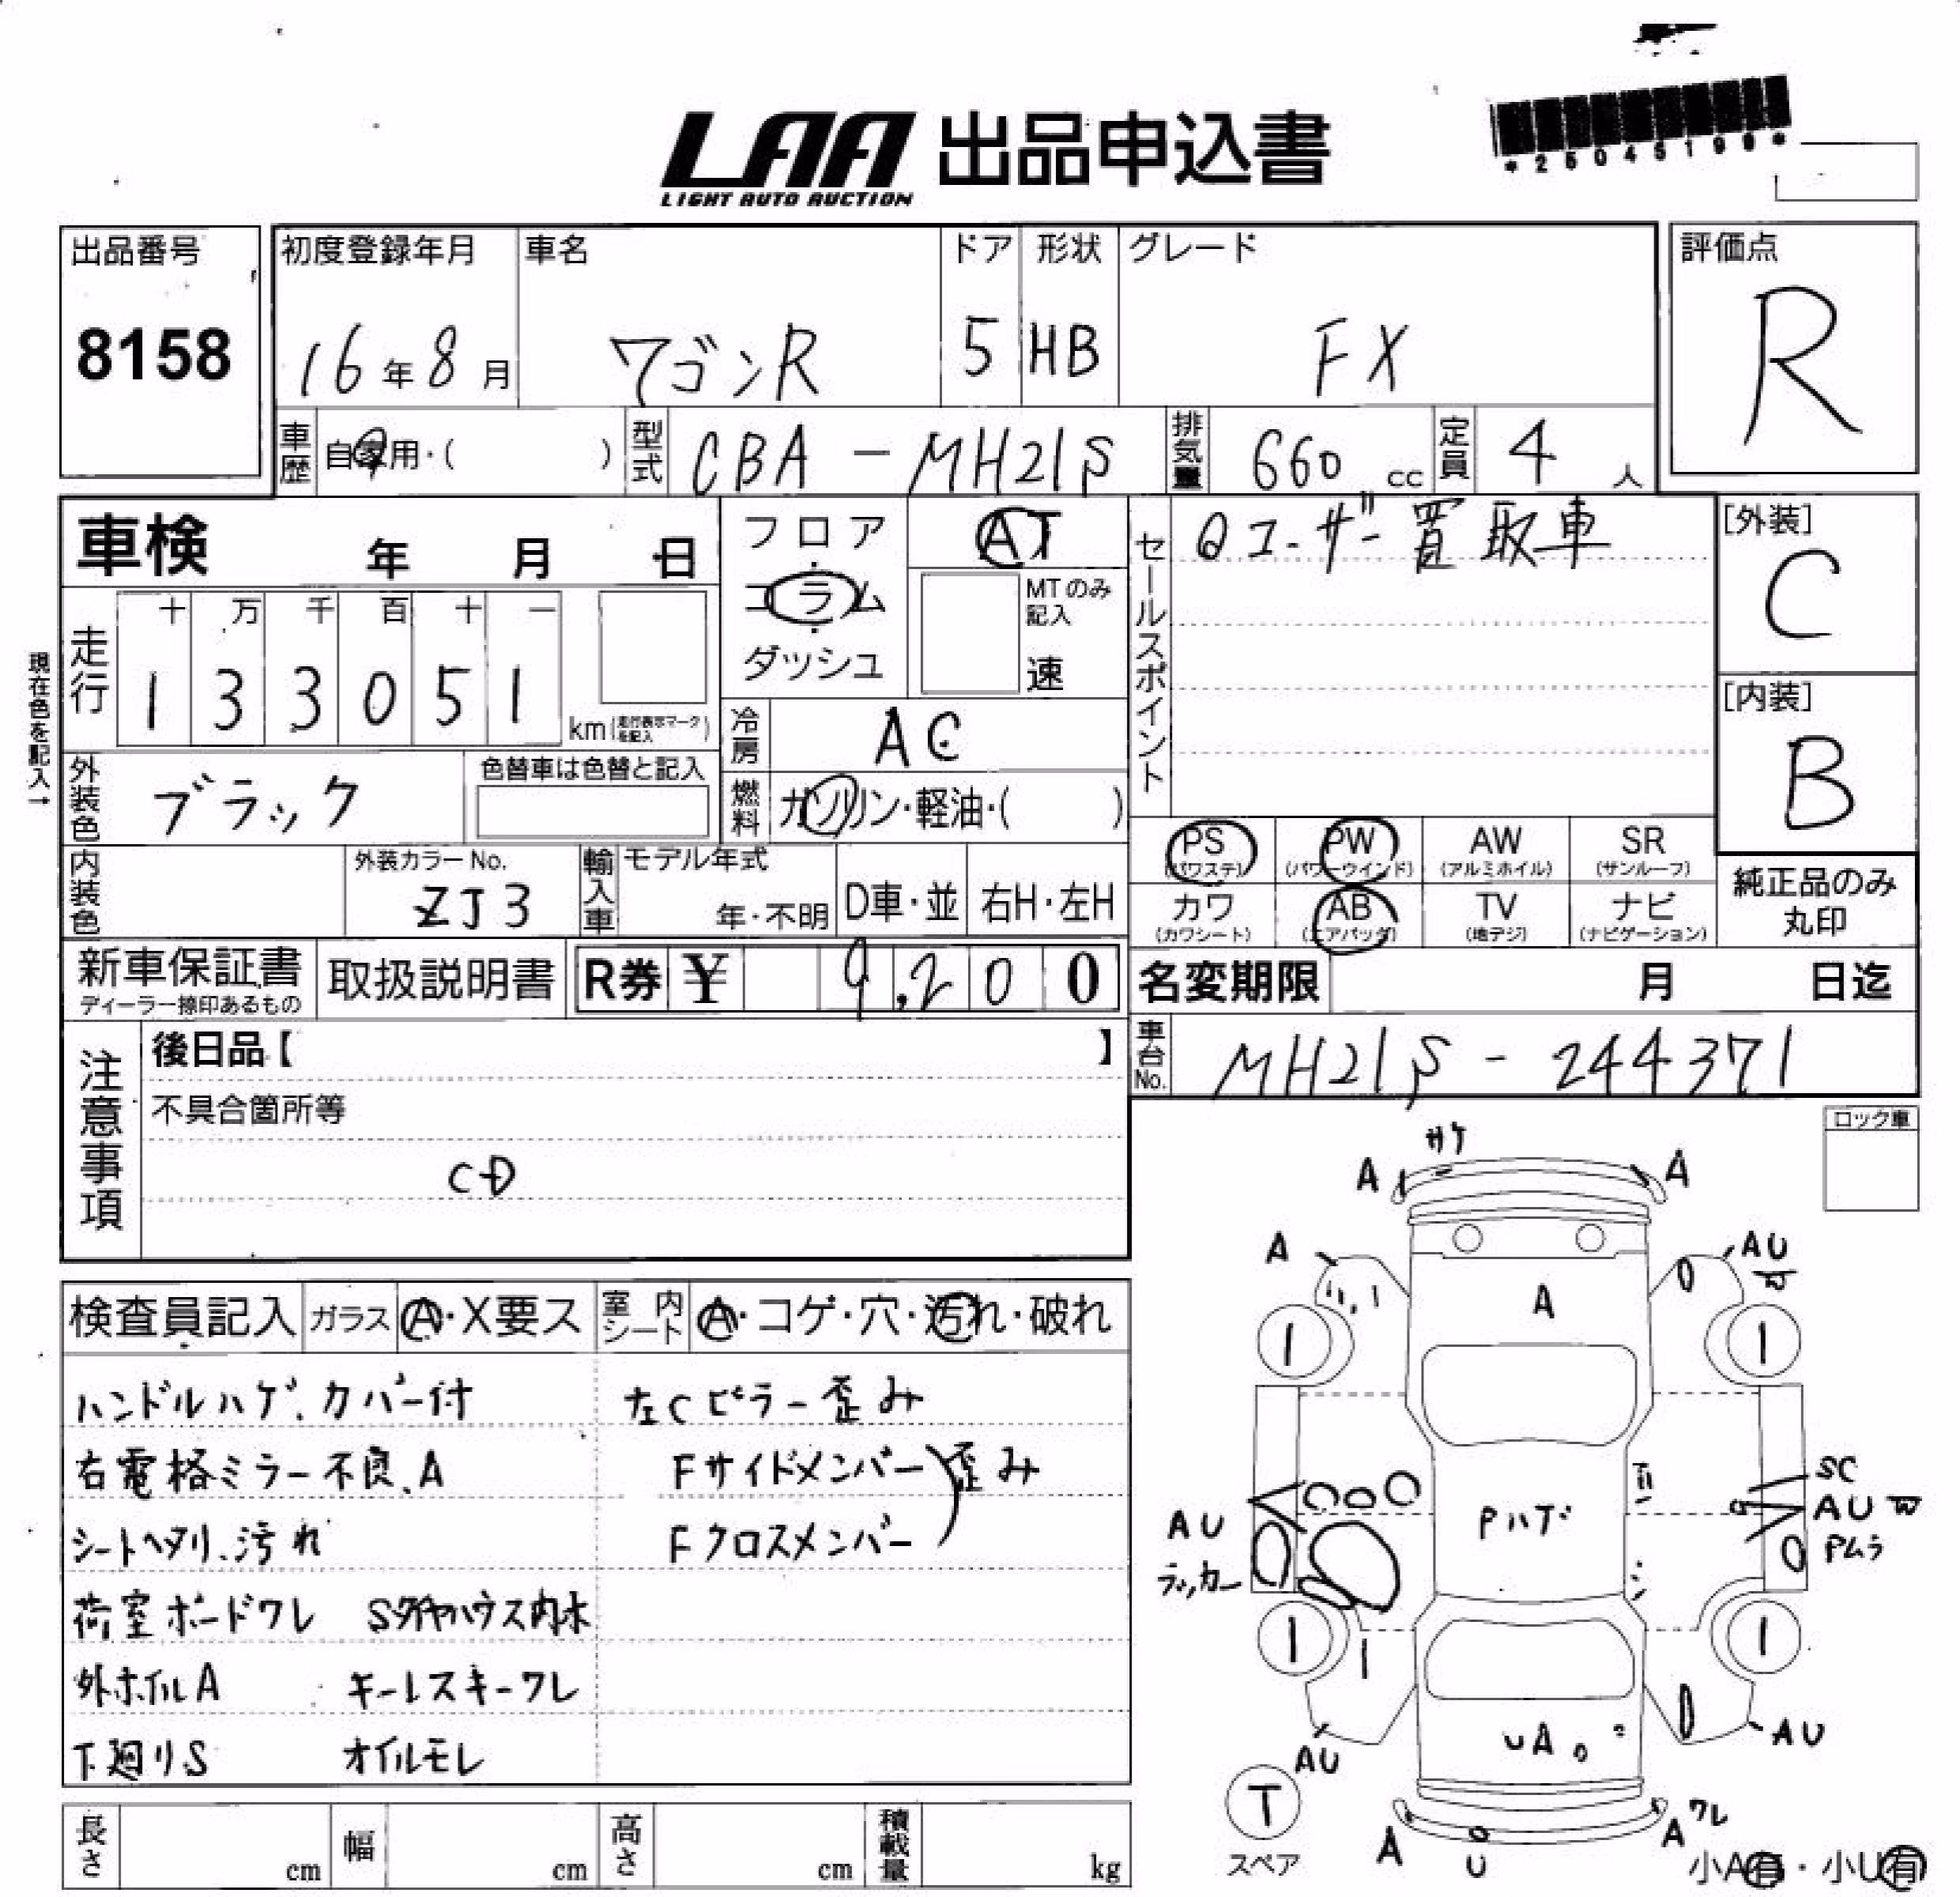 LAA 出品申込書
LIGHT AUTO AUCTION
*25045199*
出品番号
8158
初度登録年月
16年8月
車名
ワゴンR
ドア
5
形状
HB
グレード
FX
評価点
R
車歴 自家用・( )
型式 CBA-MH21S
排気量 660 cc
定員 4 人
車検 年 月 日
フロア・コラム・ダッシュ
AT
MTのみ記入
速
セールスポイント
ユーザー買取車
[外装]
C
[内装]
B
現在色を記入→
走行
十 万 千 百 十 一
1 3 3 0 5 1
km(走行表示マークを記入)
冷房 AC
燃料 ガソリン・軽油・( )
外装色 ブラック
色替車は色替と記入
内装色
外装カラーNo.
ZJ3
輸入車
モデル年式
年・不明
D車・並
右H・左H
PS (パワステ)
PW (パワーウインド)
AW (アルミホイル)
SR (サンルーフ)
カワ (カワシート)
AB (エアバッグ)
TV (地デジ)
ナビ (ナビゲーション)
純正品のみ丸印
新車保証書
ディーラー捺印あるもの
取扱説明書
R券 ¥ 9,200
名変期限 月 日迄
車台No. MH21S-244371
注意事項
後日品【 】
不具合箇所等
CD
ロック車
検査員記入
ガラス A・X要ス
室内シート A・コゲ・穴・汚れ・破れ
ハンドルハゲ、カバー付
右電格ミラー不良、A
シートヘタリ、汚れ
荷室ボードワレ
外ホイルA キーレスキーワレ
下廻りS オイルモレ
左Cピラー歪み
Fサイドメンバー
Fクロスメンバー
歪み
サケ
A A
A AU
A
SC
AU
AU
Pハゲ
Pムラ
ラッカー
UA
AU AU
T
スペア
A U A ワレ
小A有・小U有
長さ cm
幅 cm
高さ cm
積載量 kg